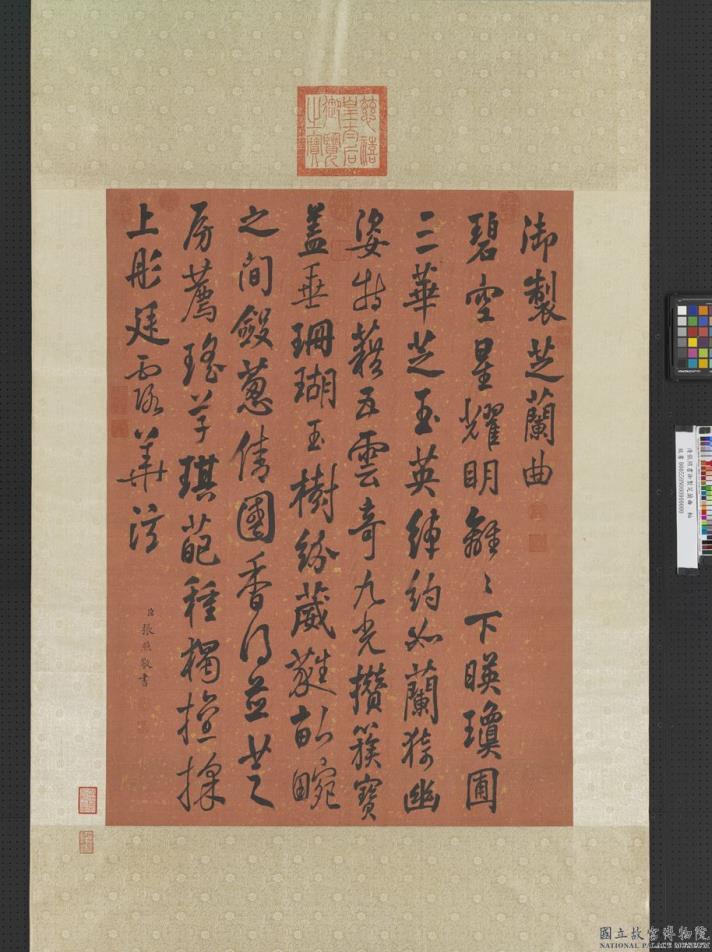 慈禧
皇太后
御覽
之寶
御製芝蘭曲
碧空星耀明離〻下暎瓊圃
三華芝玉英綽約如蘭猗幽
姿特蓺五雲奇九光攢簇寶
蓋垂珊瑚玉樹紛葳蕤畝畹
之間敠蔥倩國香乃並芝
房薦瑤芊琪葩種擢
上彤廷露華滋
臣張照敬書
國立故宮博物院
NATIONAL PALACE MUSEUM